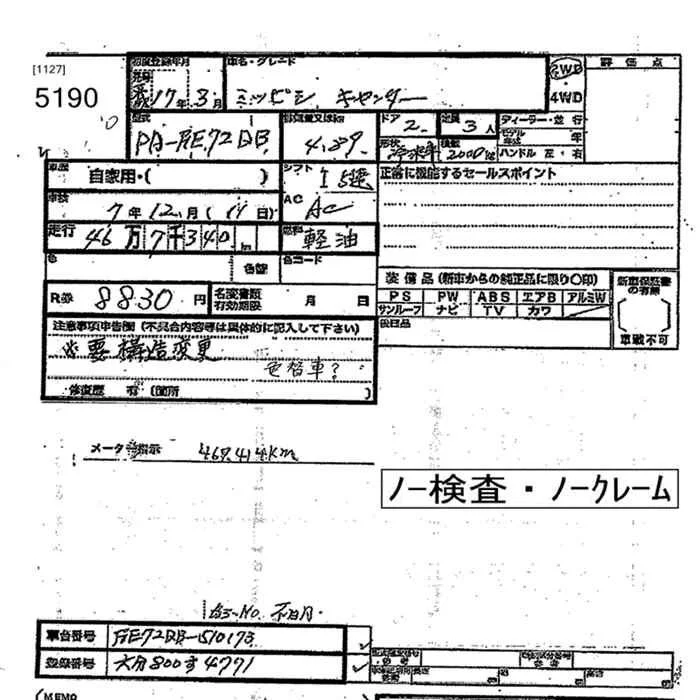 [1127]
5190
初度登録年月
17年3月
車名・グレード
ミツビシ キャンター
2WD
4WD
評価点
型式
PA-FE72DB
排気量又はkW
4.89
ドア
2
定員
3人
ディーラー・並行
モデル年式 年
形状
冷凍車
積載
2000kg
ハンドル 左・右
車歴
自家用・( )
シフト
I 5速
正常に機能するセールスポイント
車検
7年12月(11日)
AC
AC
走行
46万7千340km
燃料
軽油
色
色替
色コード
装備品(新車からの純正品に限り○印)
PS PW ABS エアB アルミW
サンルーフ ナビ TV カワ
新車保証書の有無
車載不可
R券 8830円
名変書類有効期限 月 日
後日品
注意事項申告欄(不具合内容等は具体的に記入して下さい)
※要構造変更
色替車?
修復歴 有(箇所 )
メータ指示 467,414km
ノー検査・ノークレーム
不明
車台番号 FE72DB-510173
登録番号 大分800す4771
(MEMO